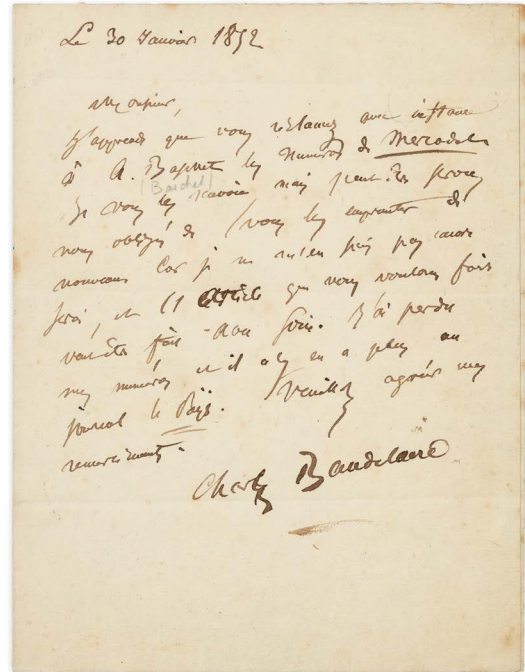 Le 30 Janvier 1852
Monsieur,
J'apprends que vous réclamez avec instance
à A. Baschet les Numéros de Mercadet.
(Baschet)
Je vous les renvoie mais peut-être serons
nous obligés de vous les emprunter de
nouveau car je ne m'en suis pas encore
servi, et l'article que nous voulons faire
veut être fait avec soin. J'ai perdu
mes numéros et il n'y en a plus au
journal le Pays. Veuillez agréer mes
remerciements.
Charles Baudelaire